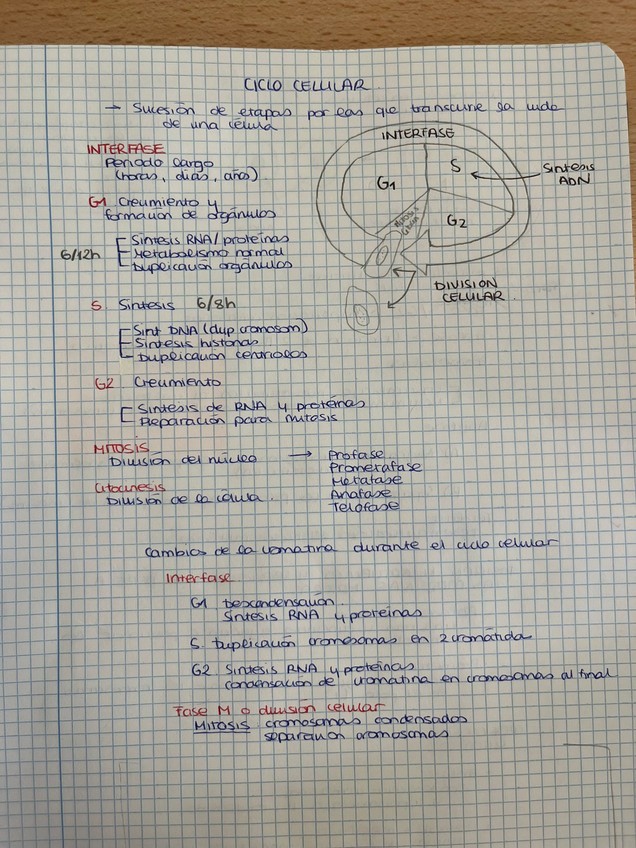 CICLO CELULAR
→ Sucesión de etapas por las que transcurre la vida
de una célula
INTERFASE
Periodo largo
(horas, dias, años)
G1 Crecimiento y
formación de orgánulos
6/12h
Sintesis RNA/proteinas
Metabolismo normal
Duplicación orgánulos
INTERFASE
G1
S
G2
Sintesis
ADN
DIVISION
CELULAR
S Sintesis 6/8h
Sint DNA (dup cromosom)
Sintesis histonas
Duplicación centriolos
G2 Crecimiento
Sintesis de RNA y proteinas
Preparación para mitosis
MITOSIS
División del núcleo →
Profase
Prometafase
Metafase
Anafase
Telofase
Citocinesis
División de la célula
Cambios de la cromatina durante el ciclo celular
Interfase
G1 Descondensación
Sintesis RNA y proteinas
S. Duplicación cromosomas en 2 cromátida
G2 Sintesis RNA y proteinas
condensación de cromatina en cromosomas al final
Fase M o división celular
Mitosis cromosomas condensados
separación cromosomas